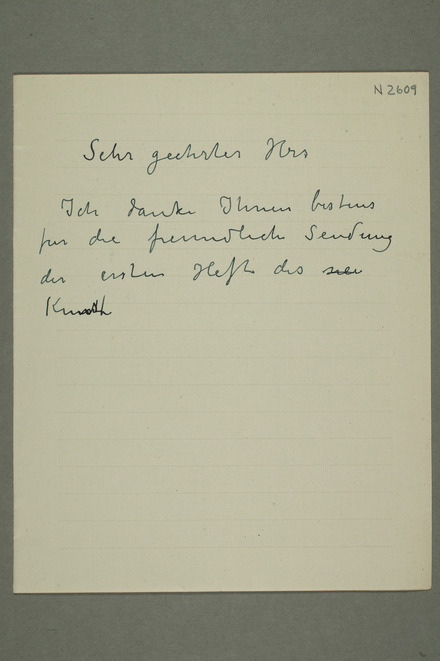 N 2609
Sehr geehrter Hrs
Ich danke Ihnen bestens
für die freundlich Sendung
der ersten Hefte des